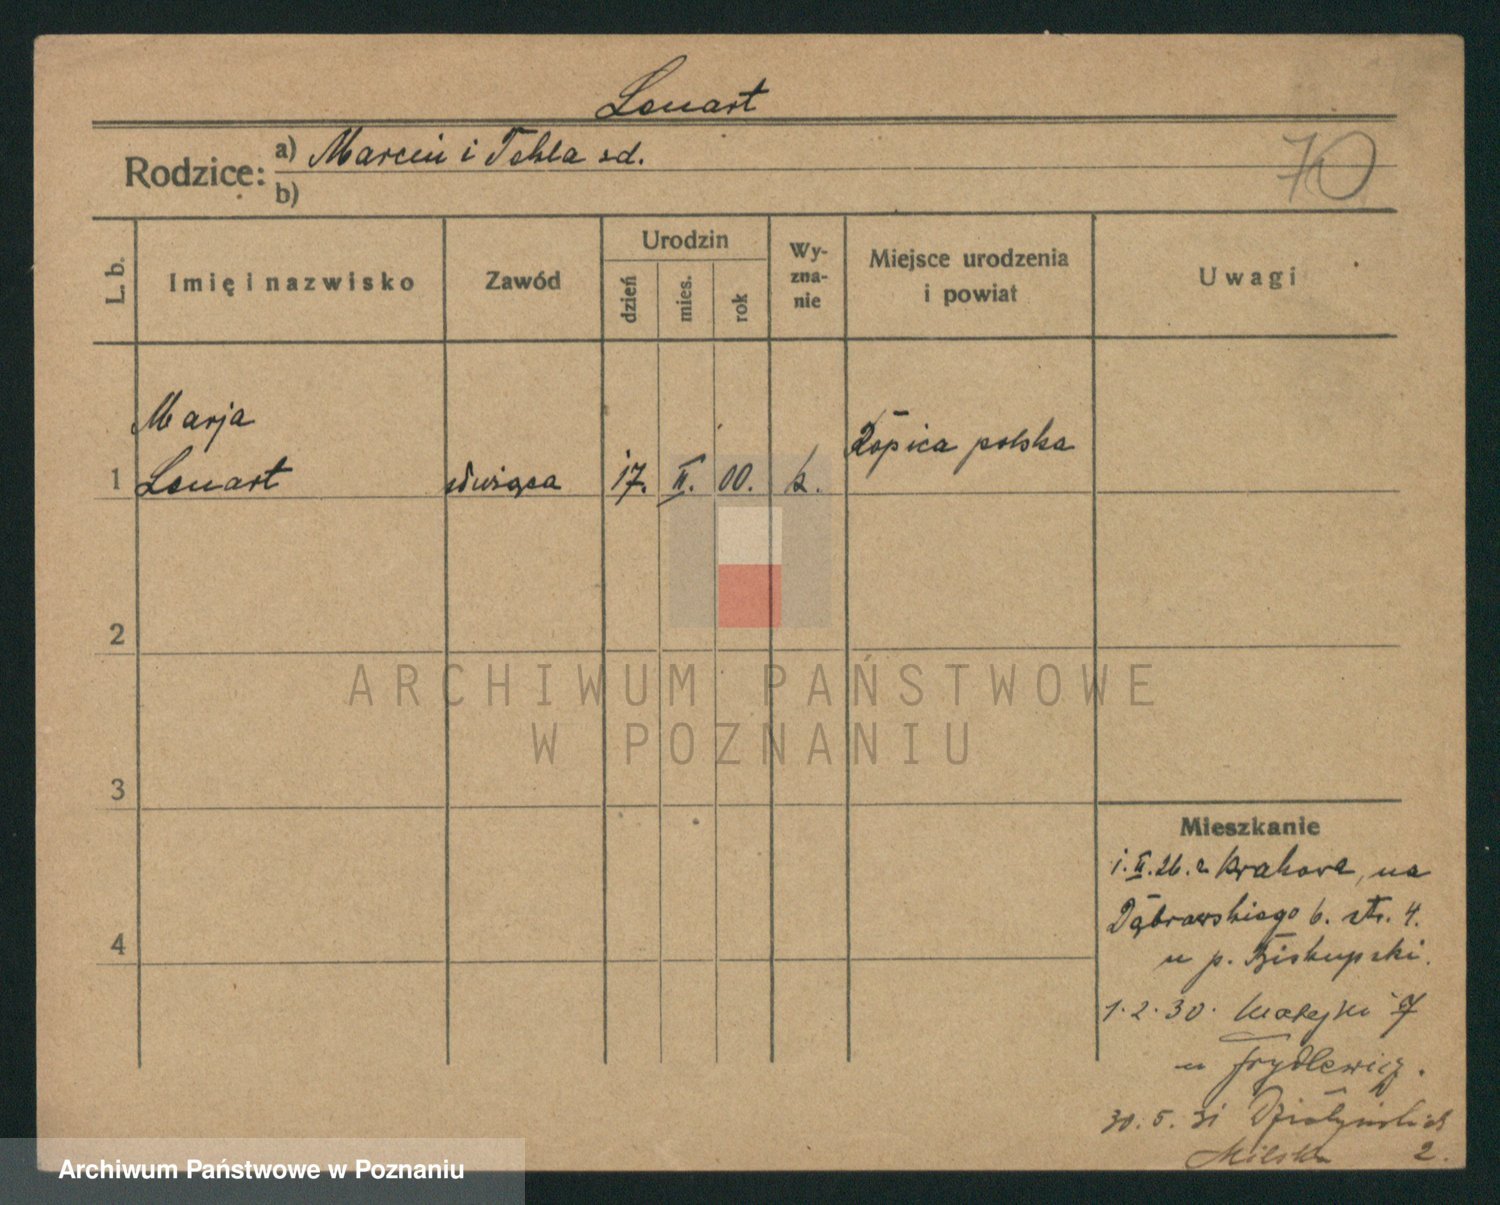 Lenart
Rodzice: a) Marcin i Tekla sd.
b)
70
L. b.
Imię i nazwisko
Zawód
Urodzin
dzień
mies.
rok
Wy-
zna-
nie
Miejsce urodzenia
i powiat
Uwagi
Marja
1 Lenart służąca 17. II. 00. k. Ropica polska
2
3
4
Mieszkanie
1. II. 26. z Krakowa, na
Dąbrowskiego 6. str. 4.
u p. Biskupski.
1.2.30. Matejki 7
u Frydlewicz.
30.5.31 Działyńskich
2.
ARCHIWUM PAŃSTWOWE
W POZNANIU
Archiwum Państwowe w Poznaniu